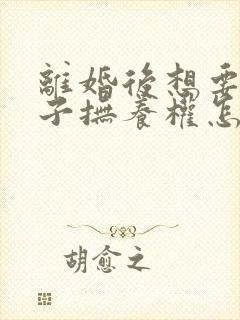 離婚後想要
子撫養權怎
胡愈之